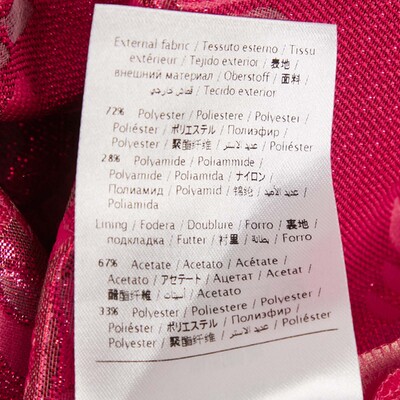 External fabric / Tessuto esterno / Tissu
extérieur / Tejido exterior / 表地 /
внешний материал / Oberstoff / 面料 /
قماش خارجي / Tecido exterior
72% Polyester / Poliestere / Polyester /
Poliéster / ポリエステル / Полиэфир /
Polyester / 聚酯纤维 / عديد الاستر / Poliéster
28% Polyamide / Poliammide /
Polyamide / Poliamida / ナイロン /
Полиамид / Polyamid / 锦纶 / عديد الاميد /
Poliamida
Lining / Fodera / Doublure / Forro / 裏地 /
подкладка / Futter / 衬里 / بطانة / Forro
67% Acetate / Acetato / Acétate /
Acetato / アセテート / Ацетат / Acetat /
醋酯纤维 / أسيتات / Acetato
33% Polyester / Poliestere / Polyester /
Poliéster / ポリエステル / Полиэфир /
Polyester / 聚酯纤维 / عديد الاستر / Poliéster